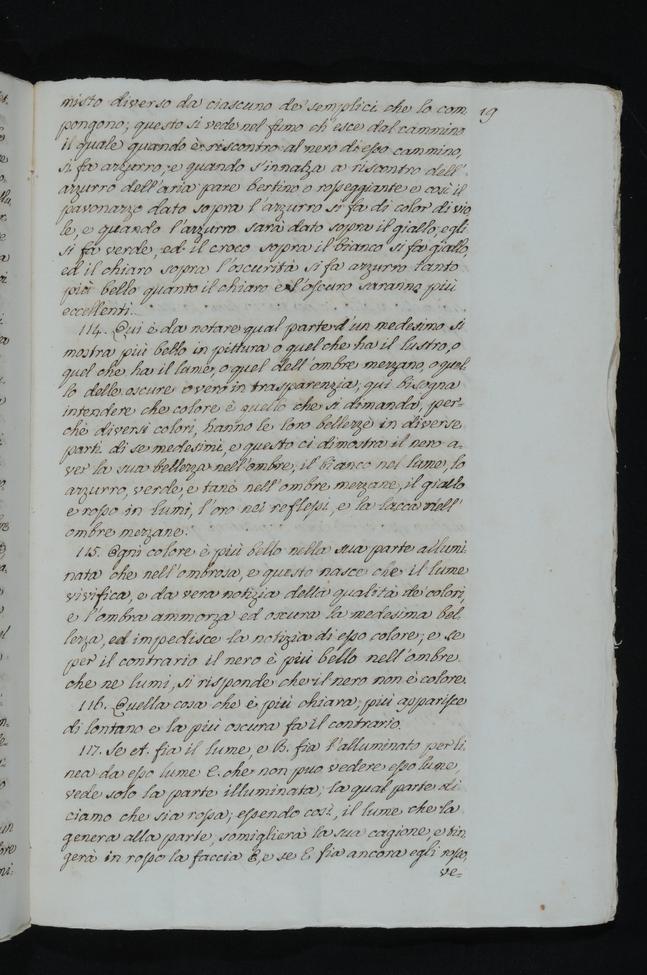 misto diverso da ciascuno de semplici che lo com 19
pongono; questo si vede nel fumo ch'esce dal cammino
il quale quando è riscontro al nero di esso cammino,
si fa azzurro, e quando s'innalza a riscontro dell'
azzurro dell'aria pare bertino o rosseggiante e così il
pavonazzo dato sopra l'azzurro si fa di color di vio
le, e quando l'azzurro sarà dato sopra il giallo, egli
si fà verde, ed il croco sopra il bianco si fa giallo,
ed il chiaro sopra l'oscurità si fa azzurro tanto
più bello quanto il chiaro e l'oscuro saranno più
eccellenti.
114. Qui è da notare qual parte d'un medesimo si
mostra più bello in pittura o quel che ha il lustro, o
quel che ha il lume, o quel dell'ombre mezzano, o quel
lo delle oscure o vero in trasparenzia, qui bisogna
intendere che colore è quello che si dimanda, per-
chè diversi colori, hanno le loro bellezze in diverse
parti di se medesimi, e questo ci dimostra il nero a-
ver la sua bellezza nell'ombre, il bianco nel lume, lo
azzurro, verde, e tanè nell'ombre mezzane, il giallo
e rosso in lumi, l'oro nei reflessi, e la lacca nell'
ombre mezzane.
115. Ogni colore è più bello nella sua parte allumi
nata che nell'ombrosa, e questo nasce che il lume
vivifica, e da vera notizia della qualità de colori,
e l'ombra ammorza ed oscura la medesima bel-
lezza, ed impedisce la notizia di esso colore; e se
per il contrario il nero è più bello nell'ombre
che ne lumi, si risponde che il nero non è colore.
116. Quella cosa che è più chiara, più apparisce
di lontano e la più oscura fa il contrario.
117. Se A. fia il lume, e B. fia l'alluminato per li
nea da esso lume E. che non puo vedere esso lume,
vede solo la parte illuminata; la qual parte di
ciamo che sia rossa; essendo così, il lume che la
genera alla parte, somiglierà la sua cagione, e tin
gerà in rosso la faccia E, e se E fia ancora egli rosso,
ve=